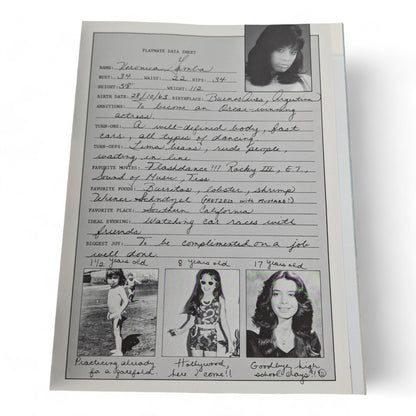 PLAYMATE DATA SHEET
NAME: Veronica Gamba
BUST: 34 WAIST: 22 HIPS: 34
HEIGHT: 5'8" WEIGHT: 112
BIRTH DATE: 28/10/63 BIRTHPLACE: Buenos Aires, Argentina
AMBITIONS: To become an Oscar-winning
actress.
TURN-ONS: A well-defined body, fast
cars, all types of dancing
TURN-OFFS: Lima beans, rude people,
waiting in line
FAVORITE MOVIES: Flashdance!!! Rocky III, E.T.,
Sound of Music, Tess
FAVORITE FOODS: Burritos, lobster, shrimp
Wiener Schnitzel (PRETZELS WITH MUSTARD!)
FAVORITE PLACE: Southern California
IDEAL EVENING: Watching car races with
friends
BIGGEST JOY: To be complimented on a job
well done.
1½ years old 8 years old 17 years old
Practicing already for a gatefold
Hollywood, here I come!!
Goodbye, high school days!!